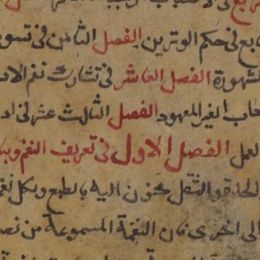 ابع فى حكم الوترين الفصل الثامن فى تسو
لشهورة الفصل العاشر فى تشارك نغم الاد
حاب الغير المعهود الفصل الثالث عشر فى اد
لعمل الفصل الاول فى تعريف النغم وبيا
الحدة والثقل محنون اليه بالطبع ولكل نغ
الى اخرى فان النغمة المسموعة من نصـ